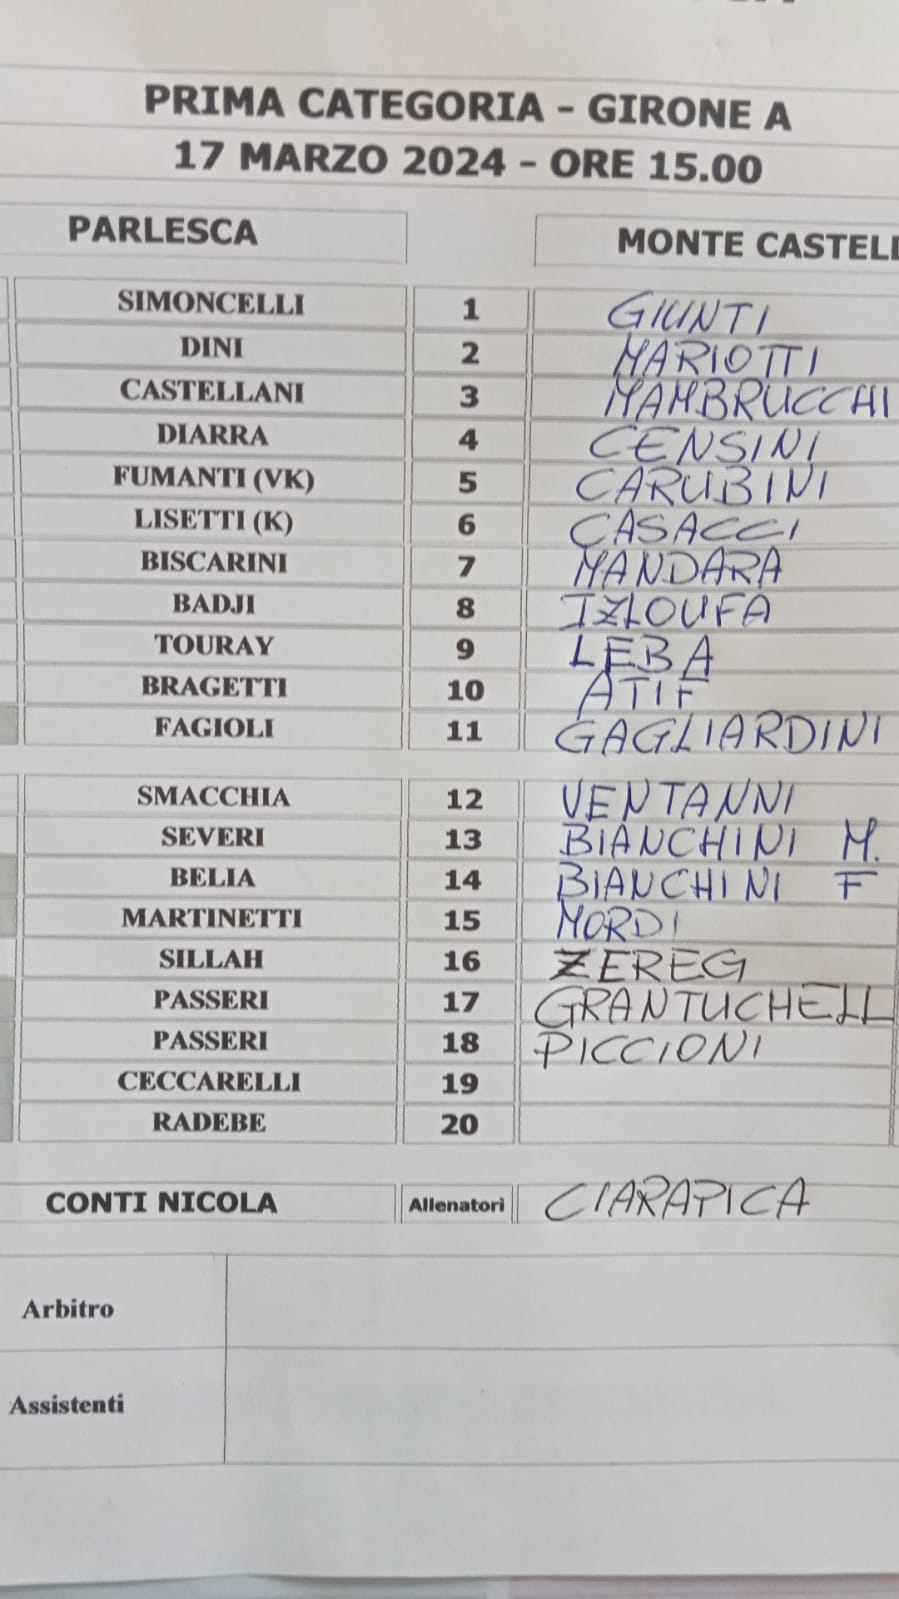 PRIMA CATEGORIA - GIRONE A
17 MARZO 2024 - ORE 15.00
PARLESCA MONTE CASTELL
SIMONCELLI 1 GIUNTI
DINI 2 MARIOTTI
CASTELLANI 3 MAMBRUCCHI
DIARRA 4 CENSINI
FUMANTI (VK) 5 CARUBINI
LISETTI (K) 6 CASACCI
BISCARINI 7 MANDARA
BADJI 8 IZLOUFA
TOURAY 9 LEBA
BRAGETTI 10 ATIF
FAGIOLI 11 GAGLIARDINI
SMACCHIA 12 VENTANNI
SEVERI 13 BIANCHINI M.
BELIA 14 BIANCHINI F
MARTINETTI 15 MORDI
SILLAH 16 ZEREG
PASSERI 17 GRANTUCHELL
PASSERI 18 PICCIONI
CECCARELLI 19
RADEBE 20
CONTI NICOLA Allenatori CIARAPICA
Arbitro
Assistenti